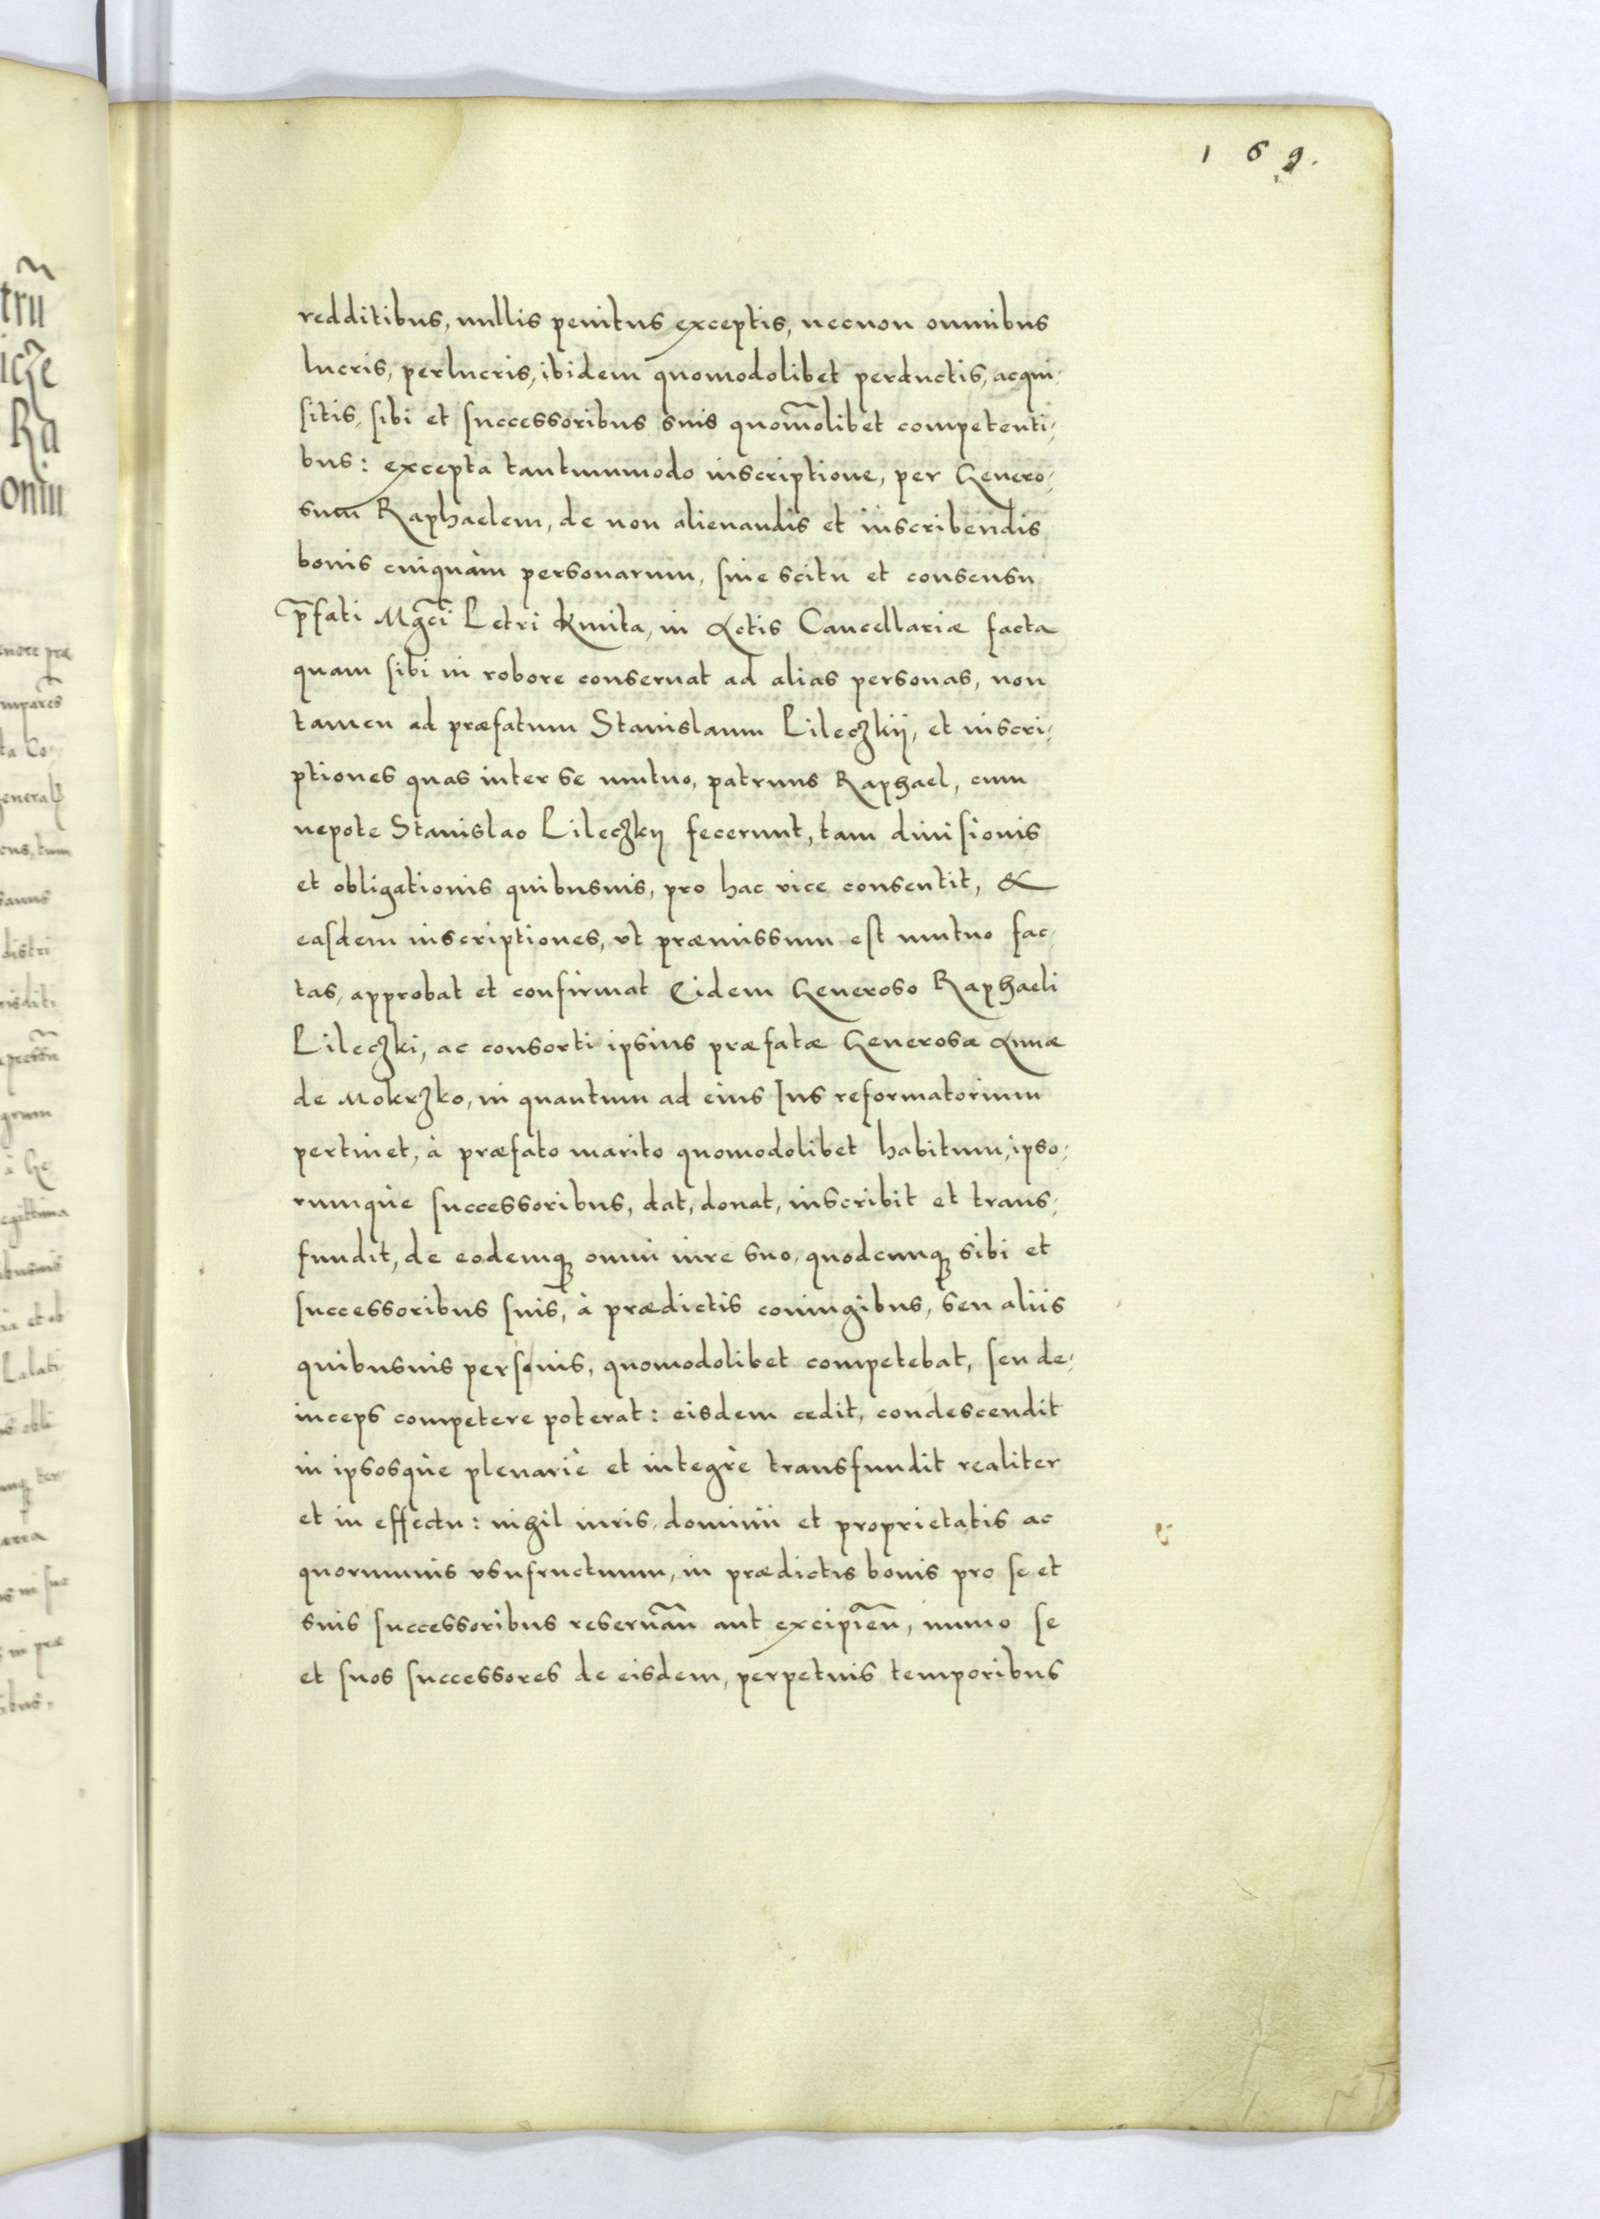 169.
redditibus, nullis penitus exceptis, necnon omnibus
lucris, perlucris, ibidem quomodolibet perductis, acqui,
sitis, sibi et successoribus suis quom̃olibet competenti,
bus: excepta tantummodo inscriptione, per Genero,
sum Raphaelem, de non alienandis et inscribendis
bonis cuiquàm personarum, sine scitu et consensu
p̃fati Mgc̃i Petri Kmita, in Actis Cancellariæ facta
quam sibi in robore conseruat ad alias personas, non
tamen ad præfatum Stanislaum Pileczkij, et inscri,
ptiones quas inter se mutuo, patruus Raphael, cum
nepote Stanislao Pileczky fecerunt, tam diuisionis
et obligationis quibusuis, pro hac vice consentit, &
easdem inscriptiones, vt præmissum est mutuo fac,
tas, approbat et confirmat Eidem Generoso Raphaeli
Pileczki, ac consorti ipsius præfatæ Generosæ Annæ
de Mokrzko, in quantum ad eius Ius reformatorium
pertinet, à præfato marito quomodolibet habitum, ipso,
rumque successoribus, dat, donat, inscribit et trans,
fundit, de eodemq; omni iure suo, quodcunq; sibi et
successoribus suis, à prædictis coniugibus, seu aliis
quibusuis personis, quomodolibet competebat, seu de,
inceps competere poterat: eisdem cedit, condescendit
in ipsosque plenariè et integrè transfundit realiter
et in effectu: nihil iuris, dominii et proprietatis ac
quorumuis vsufructuum, in prædictis bonis pro se et
suis successoribus reseruãn aut excipiẽn, immo se
et suos successores de eisdem, perpetuis temporibus